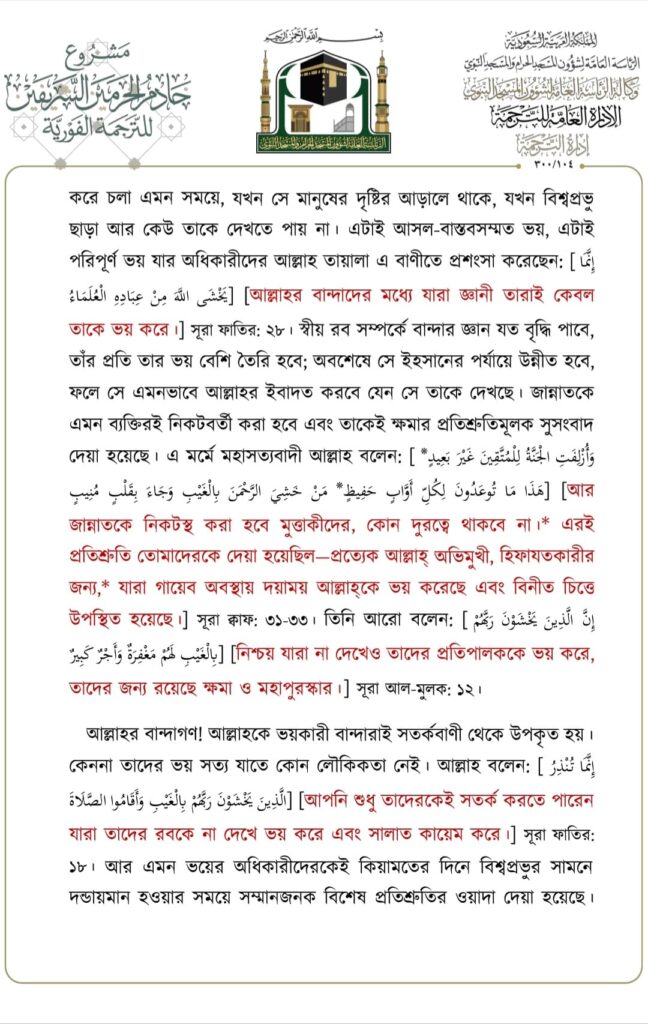 بِسْمِ اللَّهِ الرَّحْمَنِ الرَّحِيمِ
المملكة العربية السعودية
الرئاسة العامة لشؤون المسجد الحرام والمسجد النبوي
وكالة الرئاسة العامة لشؤون المسجد النبوي
الإدارة العامة للترجمة
إدارة الترجمة
٣٠٠/١٠٤
مشروع
خادم الحرمين الشريفين
للترجمة الفورية
الرئاسة العامة لشؤون المسجد الحرام والمسجد النبوي
করে চলা এমন সময়ে, যখন সে মানুষের দৃষ্টির আড়ালে থাকে, যখন বিশ্বপ্রভু
ছাড়া আর কেউ তাকে দেখতে পায় না। এটাই আসল-বাস্তবসম্মত ভয়, এটাই
পরিপূর্ণ ভয় যার অধিকারীদের আল্লাহ তায়ালা এ বাণীতে প্রশংসা করেছেন: [إِنَّمَا
يَخْشَى اللَّهَ مِنْ عِبَادِهِ الْعُلَمَاءُ] [আল্লাহর বান্দাদের মধ্যে যারা জ্ঞানী তারাই কেবল
তাকে ভয় করে।] সূরা ফাতির: ২৮। স্বীয় রব সম্পর্কে বান্দার জ্ঞান যত বৃদ্ধি পাবে,
তাঁর প্রতি তার ভয় বেশি তৈরি হবে; অবশেষে সে ইহসানের পর্যায়ে উন্নীত হবে,
ফলে সে এমনভাবে আল্লাহর ইবাদত করবে যেন সে তাকে দেখছে। জান্নাতকে
এমন ব্যক্তিরই নিকটবর্তী করা হবে এবং তাকেই ক্ষমার প্রতিশ্রুতিমূলক সুসংবাদ
দেয়া হয়েছে। এ মর্মে মহাসত্যবাদী আল্লাহ বলেন: [وَأُزْلِفَتِ الْجَنَّةُ لِلْمُتَّقِينَ غَيْرَ بَعِيدٍ*
هَذَا مَا تُوعَدُونَ لِكُلِّ أَوَّابٍ حَفِيظٍ* مَنْ خَشِيَ الرَّحْمَنَ بِالْغَيْبِ وَجَاءَ بِقَلْبٍ مُنِيبٍ] [আর
জান্নাতকে নিকটস্থ করা হবে মুত্তাকীদের, কোন দুরত্বে থাকবে না।* এরই
প্রতিশ্রুতি তোমাদেরকে দেয়া হয়েছিল—প্রত্যেক আল্লাহ্ অভিমুখী, হিফাযতকারীর
জন্য,* যারা গায়েব অবস্থায় দয়াময় আল্লাহ্‌কে ভয় করেছে এবং বিনীত চিত্তে
উপস্থিত হয়েছে।] সূরা ক্বাফ: ৩১-৩৩। তিনি আরো বলেন: [إِنَّ الَّذِينَ يَخْشَوْنَ رَبَّهُمْ
بِالْغَيْبِ لَهُمْ مَغْفِرَةٌ وَأَجْرٌ كَبِيرٌ] [নিশ্চয় যারা না দেখেও তাদের প্রতিপালককে ভয় করে,
তাদের জন্য রয়েছে ক্ষমা ও মহাপুরস্কার।] সূরা আল-মুলক: ১২।
আল্লাহর বান্দাগণ! আল্লাহকে ভয়কারী বান্দারাই সতর্কবাণী থেকে উপকৃত হয়।
কেননা তাদের ভয় সত্য যাতে কোন লৌকিকতা নেই। আল্লাহ বলেন: [إِنَّمَا تُنْذِرُ
الَّذِينَ يَخْشَوْنَ رَبَّهُمْ بِالْغَيْبِ وَأَقَامُوا الصَّلَاةَ] [আপনি শুধু তাদেরকেই সতর্ক করতে পারেন
যারা তাদের রবকে না দেখে ভয় করে এবং সালাত কায়েম করে।] সূরা ফাতির:
১৮। আর এমন ভয়ের অধিকারীদেরকেই কিয়ামতের দিনে বিশ্বপ্রভুর সামনে
দন্ডায়মান হওয়ার সময়ে সম্মানজনক বিশেষ প্রতিশ্রুতির ওয়াদা দেয়া হয়েছে।